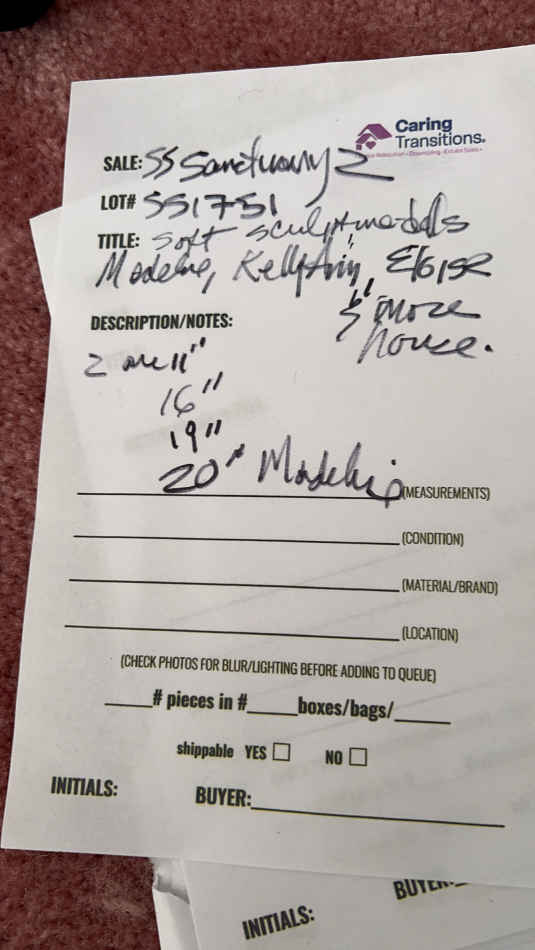 Caring
Transitions®
SALE: SS Sanctuary 2
LOT# 551751
TITLE: Soft sculpt
Madeline, Kelly Ann, Eloise
& more
house.
DESCRIPTION/NOTES:
2 are 11"
16"
19"
20" Madeline
(MEASUREMENTS)
(CONDITION)
(MATERIAL/BRAND)
(LOCATION)
(CHECK PHOTOS FOR BLUR/LIGHTING BEFORE ADDING TO QUEUE)
# pieces in # boxes/bags/
shippable YES NO
INITIALS: BUYER:
INITIALS: BUYER: